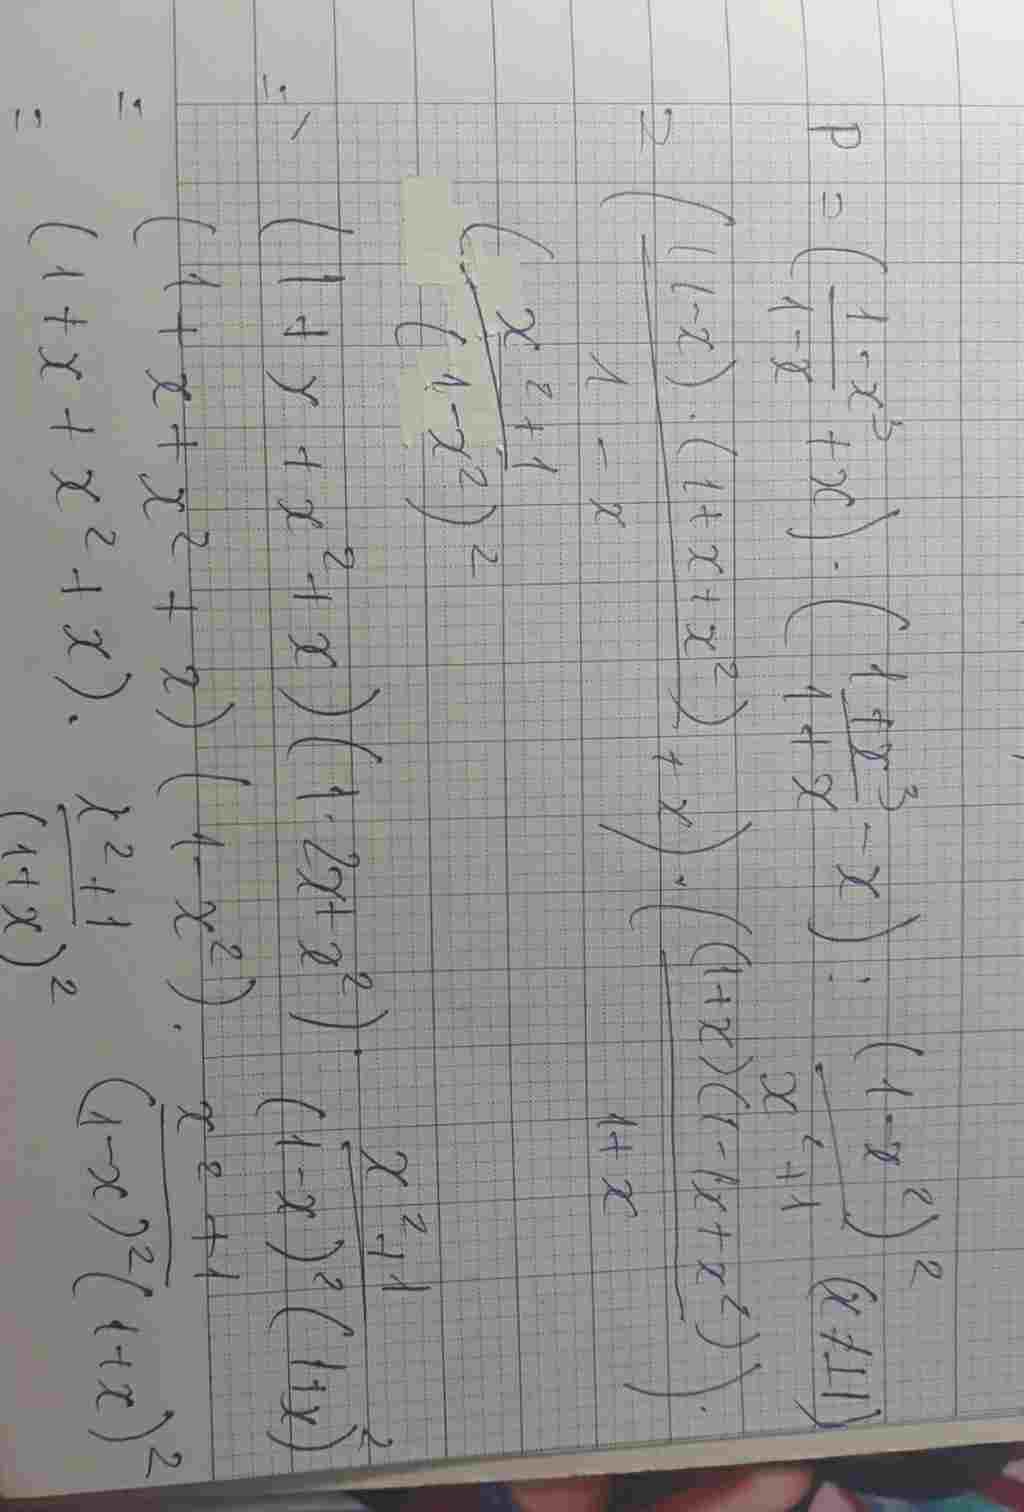 P = ( \frac{1-x^3}{1-x} + x) . ( \frac{1+x^3}{1+x} - x) : \frac{(1-x^2)^2}{x^2+1} (x ≠ ±1)
= ( \frac{(1-x).(1+x+x^2)}{1-x} + x) . ( \frac{(1+x)(1-1x+x^2)}{1+x} ) .
( \frac{x^2+1}{(1-x^2)^2}
= (1+x+x^2+x) (1-2x+x^2) . \frac{x^2+1}{(1-x)^2(1+x)^2}
= (1+x+x^2+x) (1-x^2) . \frac{x^2+1}{(1-x)^2(1+x)^2}
= (1+x+x^2+x) . \frac{x^2+1}{(1+x)^2}